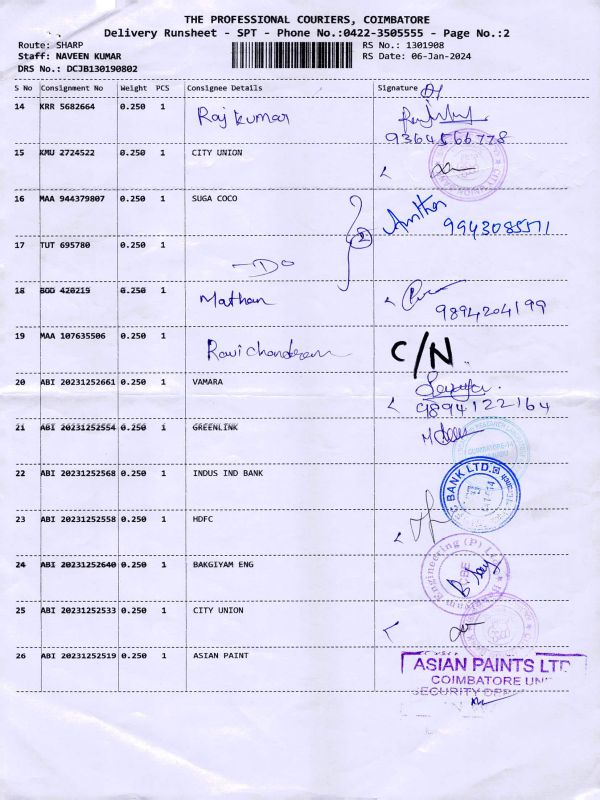 THE PROFESSIONAL COURIERS, COIMBATORE
Delivery Runsheet - SPT - Phone No.:0422-3505555 - Page No.:2
Route: SHARP
Staff: NAVEEN KUMAR
DRS No.: DCJB130190802
RS No.: 1301908
RS Date: 06-Jan-2024
S No Consignment No Weight PCS Consignee Details Signature
14 KRR 5682664 0.250 1 Rajkumar
9364566778
15 KMU 2724522 0.250 1 CITY UNION
16 MAA 944379807 0.250 1 SUGA COCO
9943085571
2
17 TUT 695780 0.250 1 -Do
18 BOD 420219 0.250 1 Mathan
9894204199
19 MAA 107635506 0.250 1 Ravichandran C/N
20 ABI 20231252661 0.250 1 VAMARA
9894122164
21 ABI 20231252554 0.250 1 GREENLINK
22 ABI 20231252568 0.250 1 INDUS IND BANK
BANK LTD.
23 ABI 20231252558 0.250 1 HDFC
24 ABI 20231252640 0.250 1 BAKGIYAM ENG
Engineering (P) Lt
25 ABI 20231252533 0.250 1 CITY UNION
26 ABI 20231252519 0.250 1 ASIAN PAINT
ASIAN PAINTS LTD
COIMBATORE UNI
SECURITY OFF